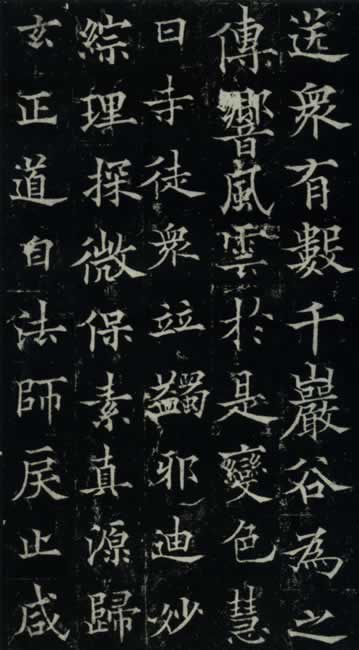 送衆有數千巖谷為之
傳響風雲於是變色慧
日寺徒衆竝蠲邪迪妙
綜理探微保素真源歸
玄正道自法師戾止咸